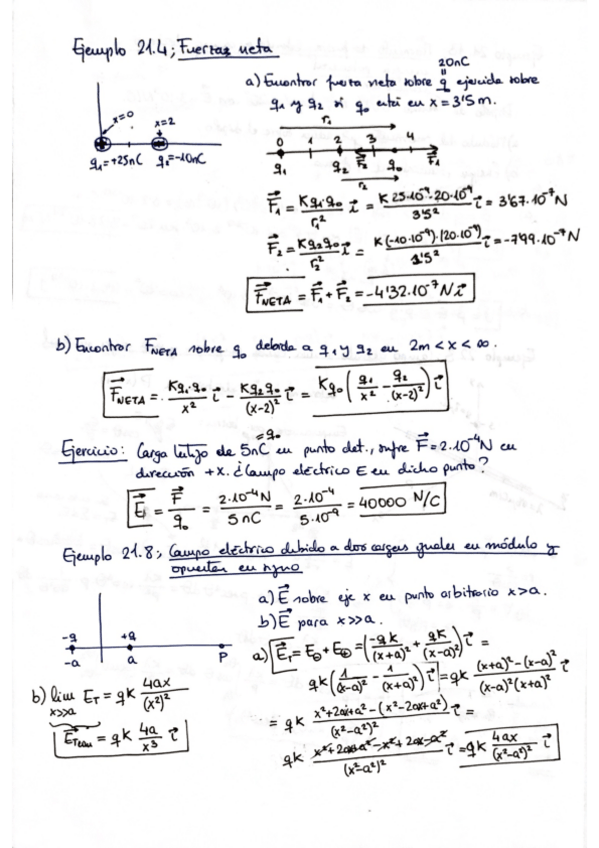 Ejemplo 21.4; Fuerzas neta
20nC
a) Encontrar fuerza neta sobre q ejercida sobre
q₁ y q₂ si q₀ está en x = 3'5 m.
x=0 x=2
q₁=+25nC q₂=-10nC
r₁
0 1 2 3 4
q₁ q₂ F₂ q₀ F₁
r₂
F⃗₁ = Kq₁q₀/r₁² i⃗ = K 25·10⁻⁹·20·10⁻⁹/3'5² i⃗ = 3'67·10⁻⁷ N
F⃗₂ = Kq₂q₀/r₂² i⃗ = K(-10·10⁻⁹)·(20·10⁻⁹)/1'5² i⃗ = -7'99·10⁻⁷ N
F⃗NETA = F⃗₁ + F⃗₂ = -4'32·10⁻⁷ N i⃗
b) Encontrar FNETA sobre q₀ debida a q₁ y q₂ en 2m < x < ∞.
F⃗NETA = Kq₁q₀/x² i⃗ - Kq₂q₀/(x-2)² i⃗ = Kq₀ (q₁/x² - q₂/(x-2)²) i⃗
=q₀
Ejercicio: Carga testigo de 5nC en punto det., sufre F⃗ = 2·10⁻⁴N en
dirección +x. ¿Campo eléctrico E en dicho punto?
E⃗ = F⃗/q₀ = 2·10⁻⁴N/5nC = 2·10⁻⁴/5·10⁻⁹ = 40000 N/C
Ejemplo 21.8; Campo eléctrico debido a dos cargas iguales en módulo y
opuestas en signo
a) E⃗ sobre eje x en punto arbitrario x>a.
b) E⃗ para x>>a.
-q +q
-a a P
a) E⃗T = E⊖ + E⊕ = (-qK/(x+a)² + qK/(x-a)²) i⃗ =
qK (1/(x-a)² - 1/(x+a)²) i⃗ = qK (x+a)²-(x-a)²/(x-a)²(x+a)² i⃗
= qK x²+2ax+a²-(x²-2ax+a²)/(x²-a²)² i⃗ =
qK x²+2ax+a²-x²+2ax-a²/(x²-a²)² i⃗ = qK 4ax/(x²-a²)² i⃗
b) lim x>>a ET = qK 4ax/(x²)²
= qK 4a/x³ i⃗